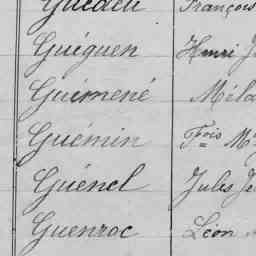 Guéden François
Guéguen Henri J
Guimené Méla
Guémin Fois M
Guénel Jules Je
Guenroc Léon